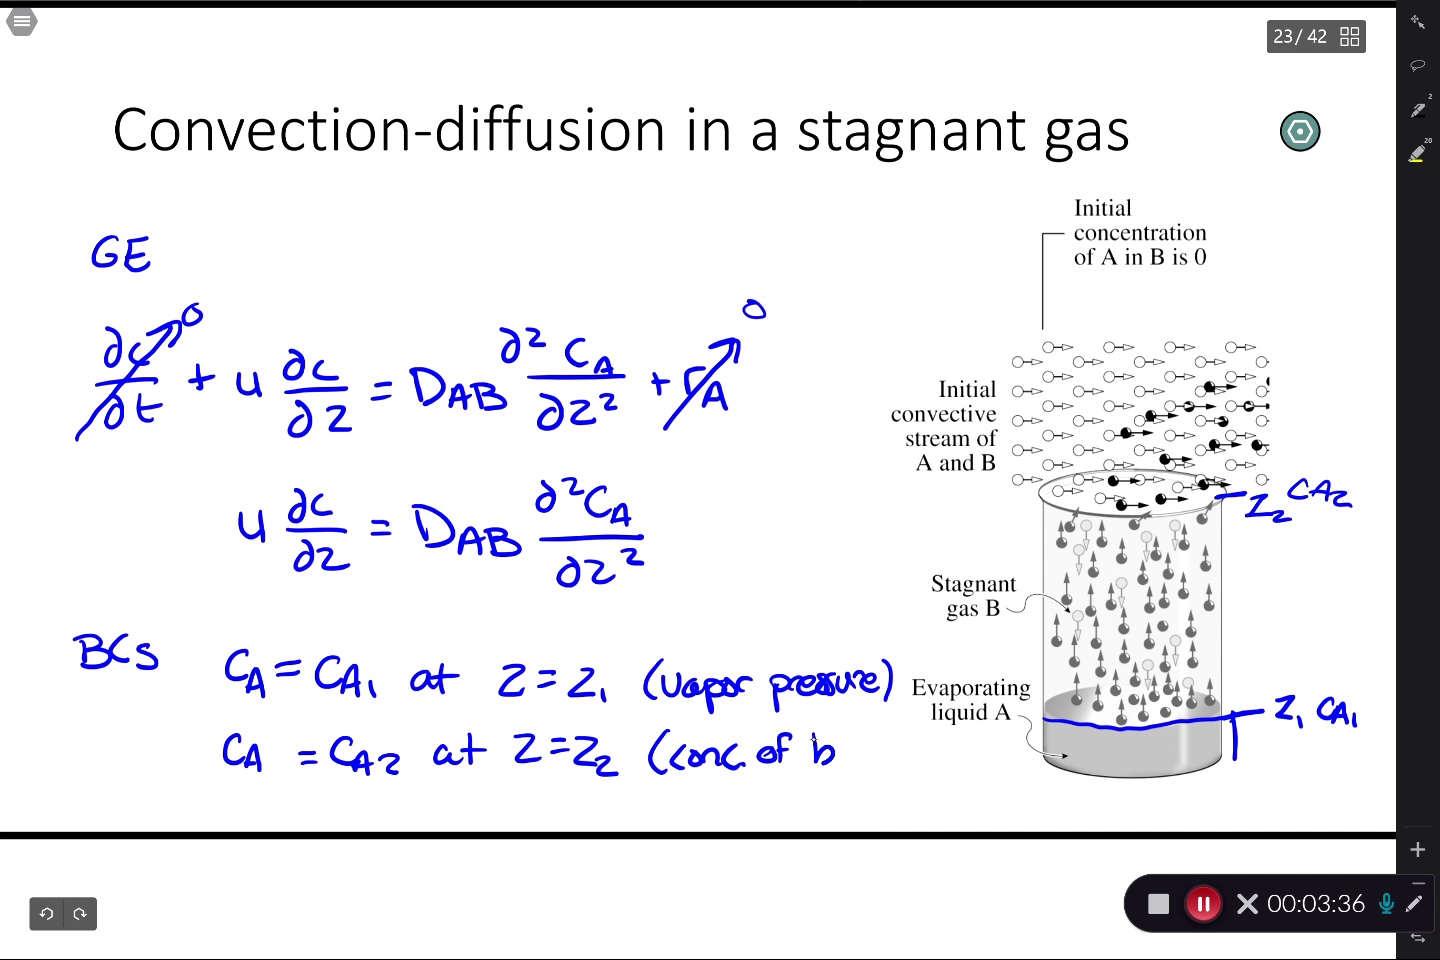 23 / 42
2
20
Convection-diffusion in a stagnant gas
GE
∂c/∂t → 0 + u ∂c/∂z = D_AB ∂²C_A/∂z² + r_A → 0
u ∂c/∂z = D_AB ∂²C_A/∂z²
BCs
C_A = C_A1 at z = z_1 (vapor pressure)
C_A = C_A2 at z = z_2 (conc. of b
Initial
concentration
of A in B is 0
Initial
convective
stream of
A and B
z_2 C_A2
Stagnant
gas B
Evaporating
liquid A
z_1 C_A1
00:03:36